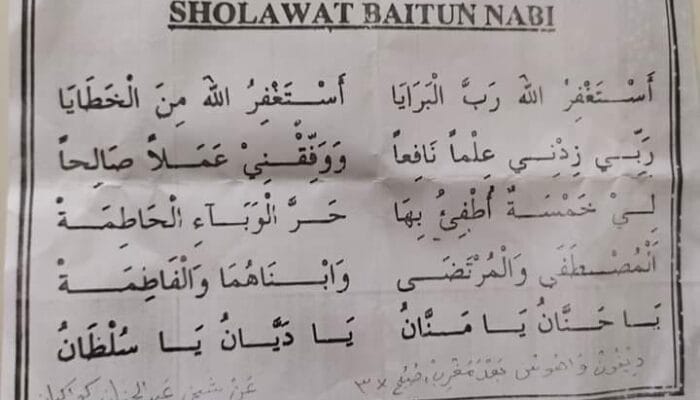 SHOLAWAT BAITUN NABI
أَسْتَغْفِرُ الله رَبَّ الْبَرَايَا أَسْتَغْفِرُ الله مِنَ الْخَطَايَا
رَبِّي زِدْنِي عِلْماً نَافِعاً وَوَفِّقْنِيْ عَمَلاً صَالِحاً
لِيْ خَمْسَةٌ أُطْفِئُ بِهَا حَرَّ الْوَبَآءِ الْحَاطِمَةْ
أَلْمُصْطَفَى وَالْمُرْتَضَى وَابْنَاهُمَا وَالْفَاطِمَةْ
يَا حَنَّانُ يَا مَنَّانُ يَا دَيَّانُ يَا سُلْطَانُ
بعد مغرب، صبح ×٣ عن شيخ